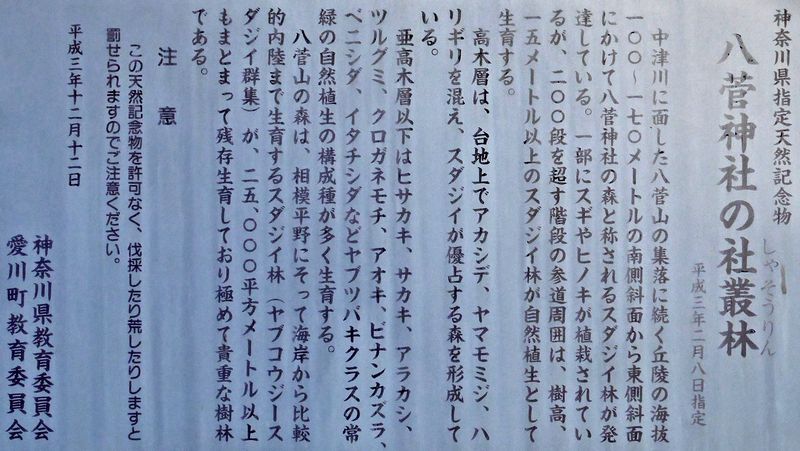 神奈川県指定天然記念物
八菅神社の社叢林
しゃそうりん
平成三年二月八日指定
中津川に面した八菅山の集落に続く丘陵の海抜
一〇〇〜一七〇メートルの南側斜面から東側斜面
にかけて八菅神社の森と称されるスダジイ林が発
達している。一部にスギやヒノキが植栽されてい
るが、二〇〇段を超す階段の参道周囲は、樹高、
一五メートル以上のスダジイ林が自然植生として
生育する。
高木層は、台地上でアカシデ、ヤマモミジ、ハ
リギリを混え、スダジイが優占する森を形成して
いる。
亜高木層以下はヒサカキ、サカキ、アラカシ、
ツルグミ、クロガネモチ、アオキ、ビナンカズラ、
ベニシダ、イタチシダなどヤブツバキクラスの常
緑の自然植生の構成種が多く生育する。
八菅山の森は、相模平野にそって海岸から比較
的内陸まで生育するスダジイ林（ヤブコウジース
ダジイ群集）が、二五、〇〇〇平方メートル以上
もまとまって残存生育しており極めて貴重な樹林
である。
注意
この天然記念物を許可なく、伐採したり荒したりしますと
罰せられますのでご注意ください。
平成三年十二月十二日
神奈川県教育委員会
愛川町教育委員会